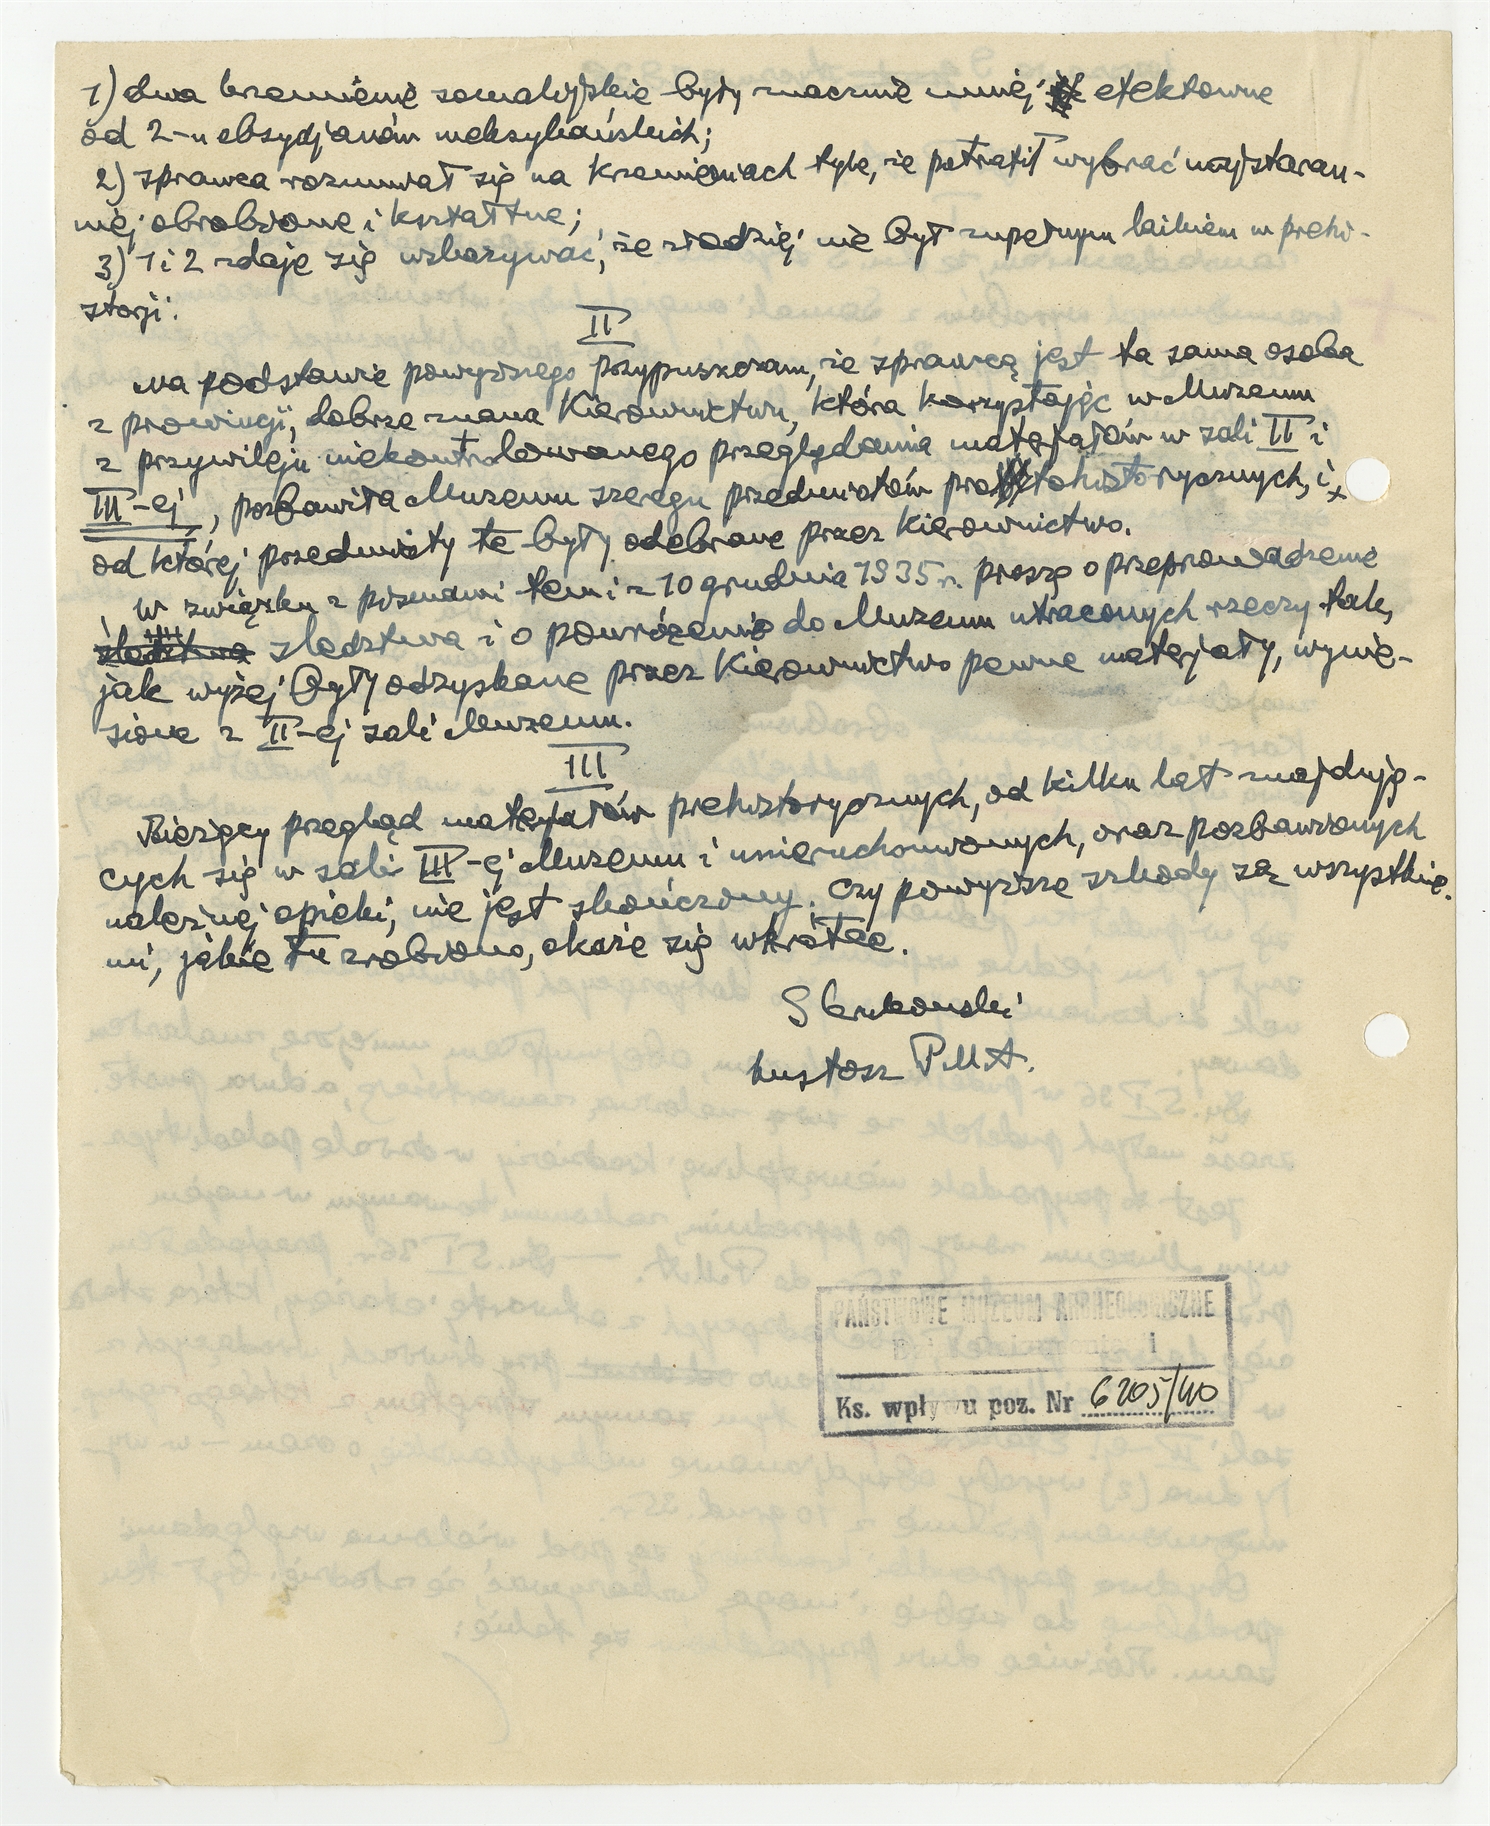 1) dwa krzemienie somalijskie były znacznie mniej efektowne
od 2-u obsydjanów meksykańskich;
2) sprawca rozumiał się na krzemieniach tyle, że potrafił wybrać najstaran-
niej obrobione i kształtne;
3) 1 i 2 zdaje się wskazywać, że złodziej nie był zupełnym laikiem w prehi-
storji.
II
Na podstawie powyższego przypuszczam, że sprawcą jest ta sama osoba
z prowincji, dobrze znana Kierownictwu, która korzystając w Muzeum
z przywileju niekontrolowanego przeglądania materjałów w sali II i
III-ej, pozbawiła Muzeum szeregu przedmiotów protohistorycznych, i
od której przedmioty te były odebrane przez Kierownictwo.
W związku z pismami tem i z 10 grudnia 1935 r. proszę o przeprowadzenie
śledztwa śledztwa i o powrócenie do Muzeum utraconych rzeczy tak,
jak wyżej były odzyskane przez Kierownictwo pewne materjały, wynie-
sione z II-ej sali Muzeum.
III
Bieżący przegląd materjałów prehistorycznych, od kilku lat znajdują-
cych się w sali III-ej Muzeum i unieruchomionych, oraz pozbawionych
należnej opieki, nie jest skończony. Czy powyższe szkody są wszystkie-
mi, jakie tu zrobiono, okaże się wkrótce.
S Krukowski
kustosz P.M.A.
PAŃSTWOWE MUZEUM ARCHEOLOGICZNE
Ks. wpływu poz. Nr 6205/40